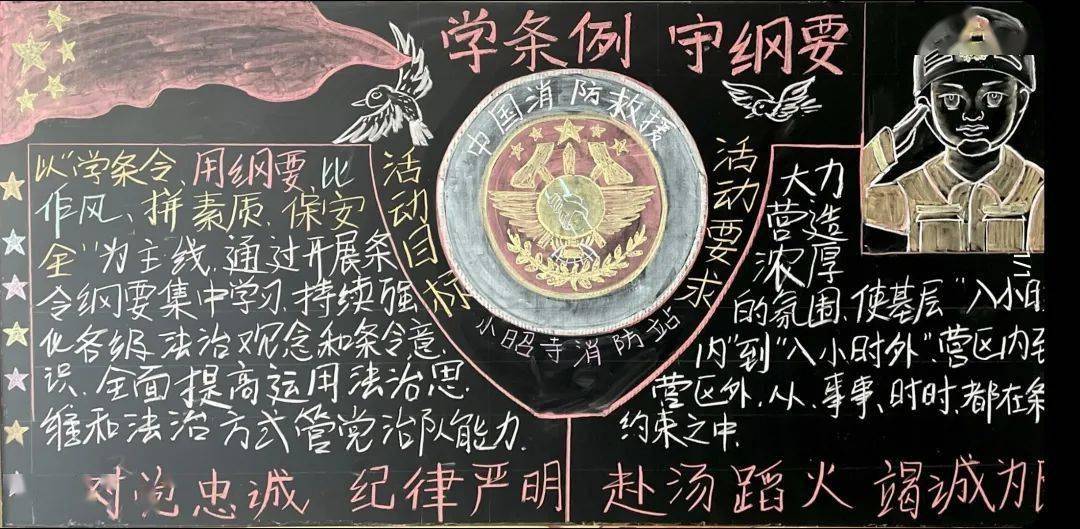 学条例 守纲要
中国消防救援
小昭寺消防站
活动目标
以"学条令、用纲要、比
作风、拼素质、保安
全"为主线,通过开展条
令纲要集中学习,持续强
化各级法治观念和条令意
识.全面提高运用法治思
维和法治方式管党治队能力.
活动要求
大力
营造
浓厚
的氛围,使基层"八小时
内"到"八小时外".营区内到
营区外,从、事事、时时,都在条
约束之中.
对党忠诚 纪律严明 赴汤蹈火 竭诚为